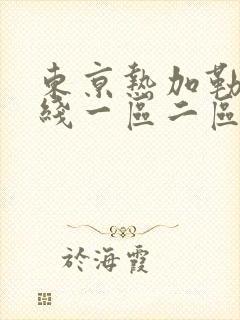 東京熱加勒
綫一區二區
於海霞